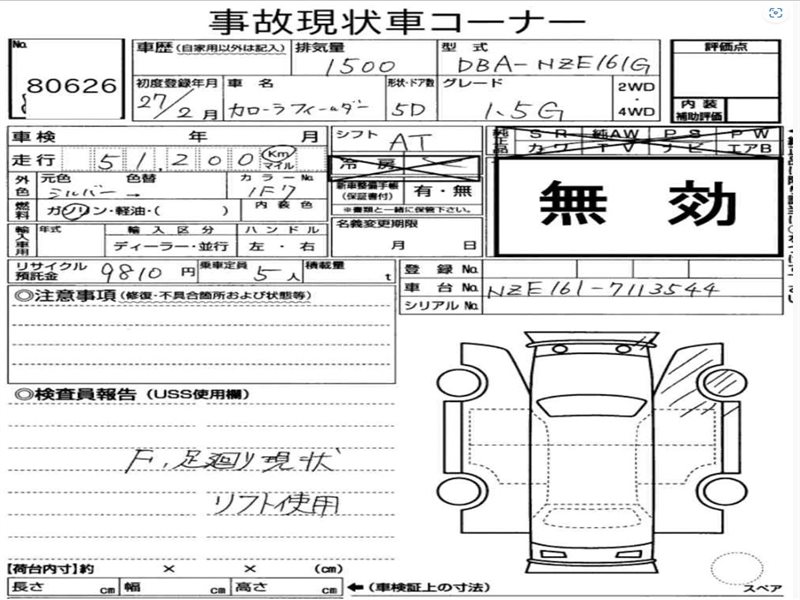 事故現状車コーナー
No. 80626
車歴 (自家用以外は記入) 排気量 1500 型式 DBA-NZE161G 評価点
初度登録年月 27/2月 車名 カローラフィールダー 形状・ドア数 5D グレード 1.5G 2WD・4WD
内装補助評価
車検 年 月 シフト AT 純正品 SR 純AW PS PW
カワ TV ナビ エアB
走行 51,200 Km マイル 冷房
外色 元色 シルバー → 色替 カラーNo. 1F7 新車整備手帳(保証書付) 有・無
※書類と一緒に保管下さい。
燃料 ガソリン・軽油・( ) 内装色
無効
輸入車用 年式 輸入区分 ディーラー・並行 ハンドル 左・右 名義変更期限 月 日
リサイクル預託金 9810円 乗車定員 5人 積載量 t
登録No.
車台No. NZE161-7113544
シリアルNo.
◎注意事項(修復・不具合箇所および状態等)
◎検査員報告(USS使用欄)
F,足廻り現状
リフト使用
【荷台内寸】約 × × (cm)
長さ cm 幅 cm 高さ cm ←(車検証上の寸法)
スペア